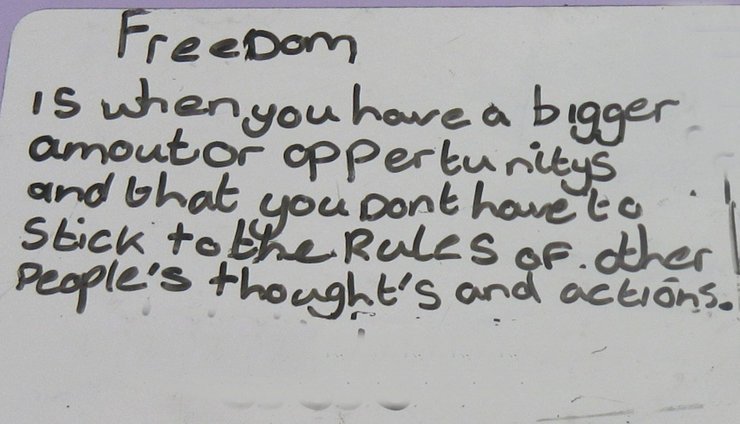 FreeDom
is when you have a bigger
amout or oppertunitys
and that you Dont have to
Stick to the Rules of other
People's thought's and actions.